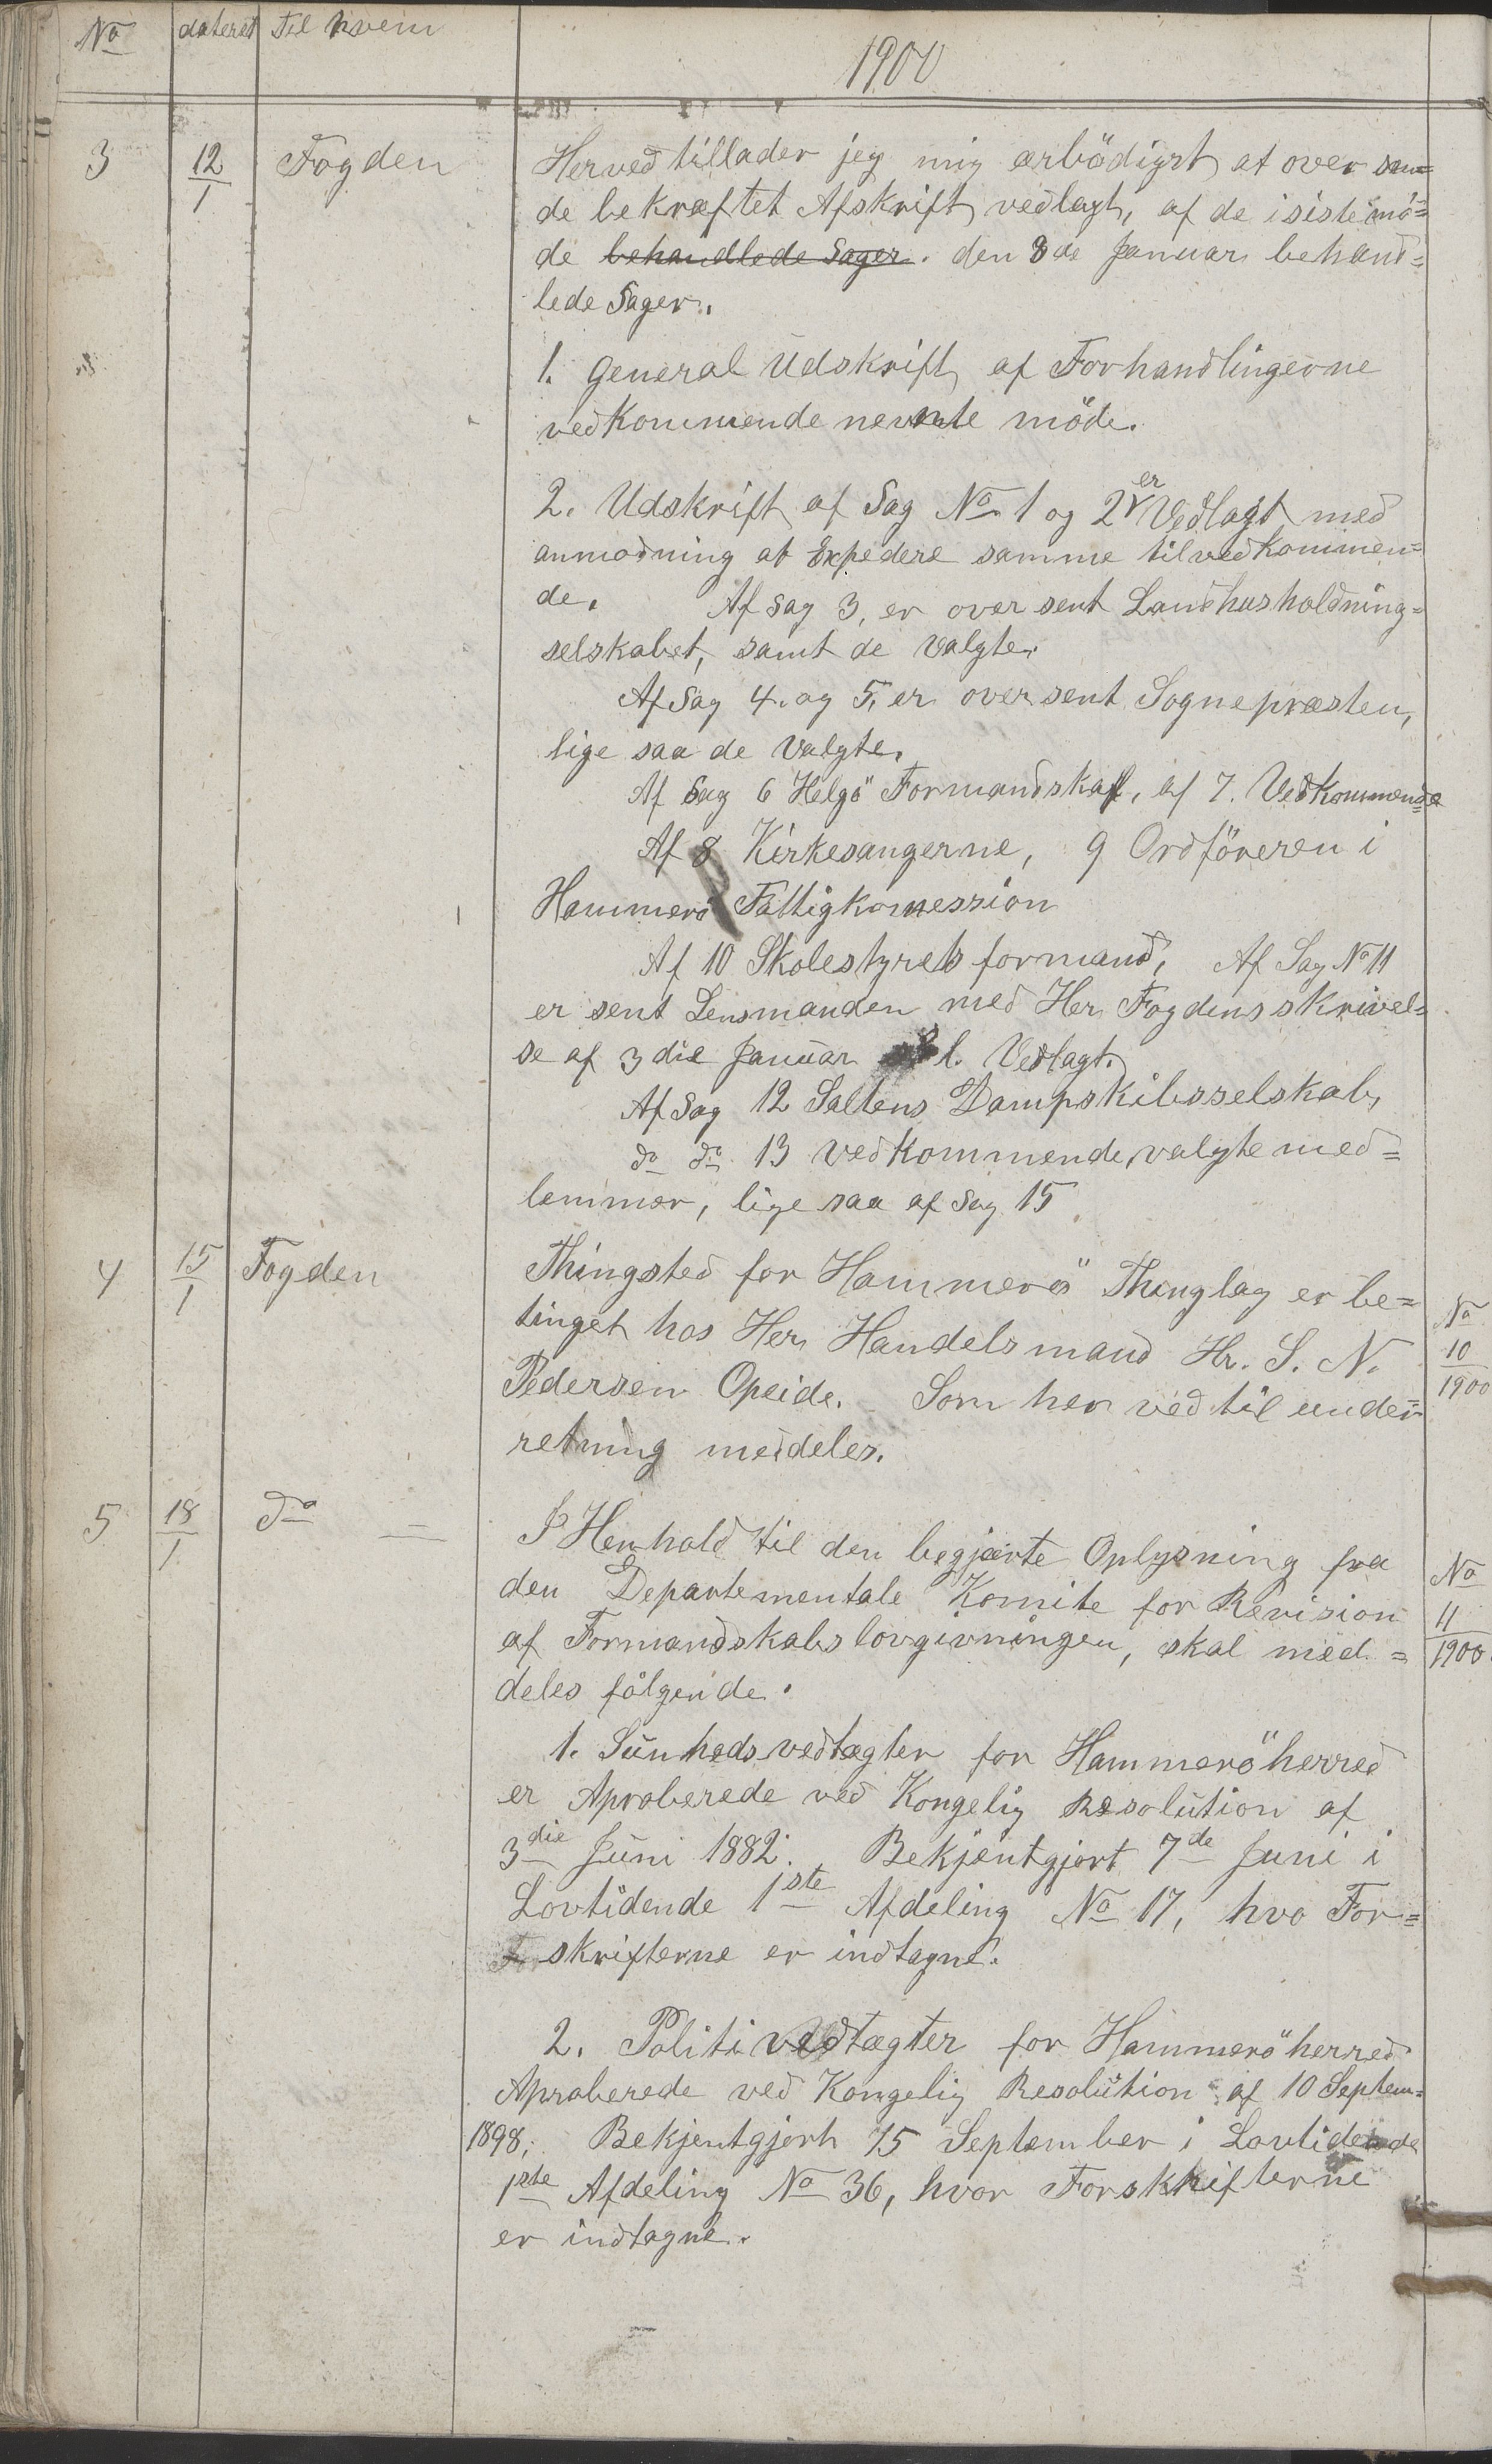 No dateret Til hvem 1900
3 12/1 Fogden Herved tillader jeg mig ærbödigst at over sen=
de bekræftet Afskrift vedlagt, af de i siste mö=
de behandlede Sager. den 8de Januar behand=
lede Sager.
1. General Udskrift af Forhandlingerne
vedkommende nevnte möde.
2. Udskrift af Sag No 1 og 2 er Vedlagt med
anmodning at Expedere samme til vedkommen=
de. Af Sag 3, er over sent Landhusholdning=
selskabet, samt de valgte.
Af Sag 4. og 5, er over sent Sognepræsten,
lige saa de valgte.
Af Sag 6 Helgö Formandskap, af 7. Vedkommende
Af 8 Kirkesangerne, 9 Ordföreren i
Hammerö Fattigkomession
Af 10 Skolestyrets formand, Af Sag No 11
er sent Lensmanden med Her Fogdens skrivel=
se af 3die Januar l. Vedlagt.
Af Sag 12 Saltens Dampskibsselskab,
do do 13 vedkommende valgte med=
lemmer, lige saa af Sag 15
4 15/1 Fogden Thingsted for Hammerö Thinglag er be=
tinget hos Her Handelsmand Hr. S. N.
Pedersen Opeide. Som her ved til under
retning meddeles.
No
10
1900
5 18/1 do — I Henhold til den begjærte Oplysning fra
den Departementale Komite for Revision
af Formandskabslovgivningen, skal med=
deles fölgende.
No
11
1900.
1. Sunhedsvedtægter for Hammeröherred
er Aproberede ved Kongelig Resolution af
3die Juni 1882. Bekjentgjort 7de Juni i
Lovtidende 1ste Afdeling No 17, hvo For=
skrifterne er indtagne.
2. Politivedtægter for Hammeröherred
Aproberede ved Kongelig Resolution af 10 Septem=
1898; Bekjentgjort 15 September i Lovtidende
1ste Afdeling No 36, hvor Forskrifterne
er indtagne.